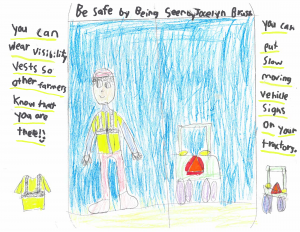 Be safe by Being Seen by Jocelyn
You can
Wear Visibility
Vests so
other farmers
Know that
You are
there!!
You can
put
Slow
moving
vehicle
Signs
On your
tractors.